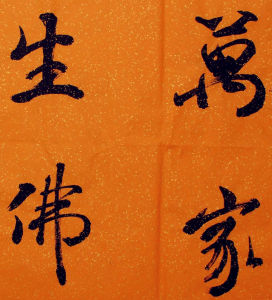 萬家
生佛